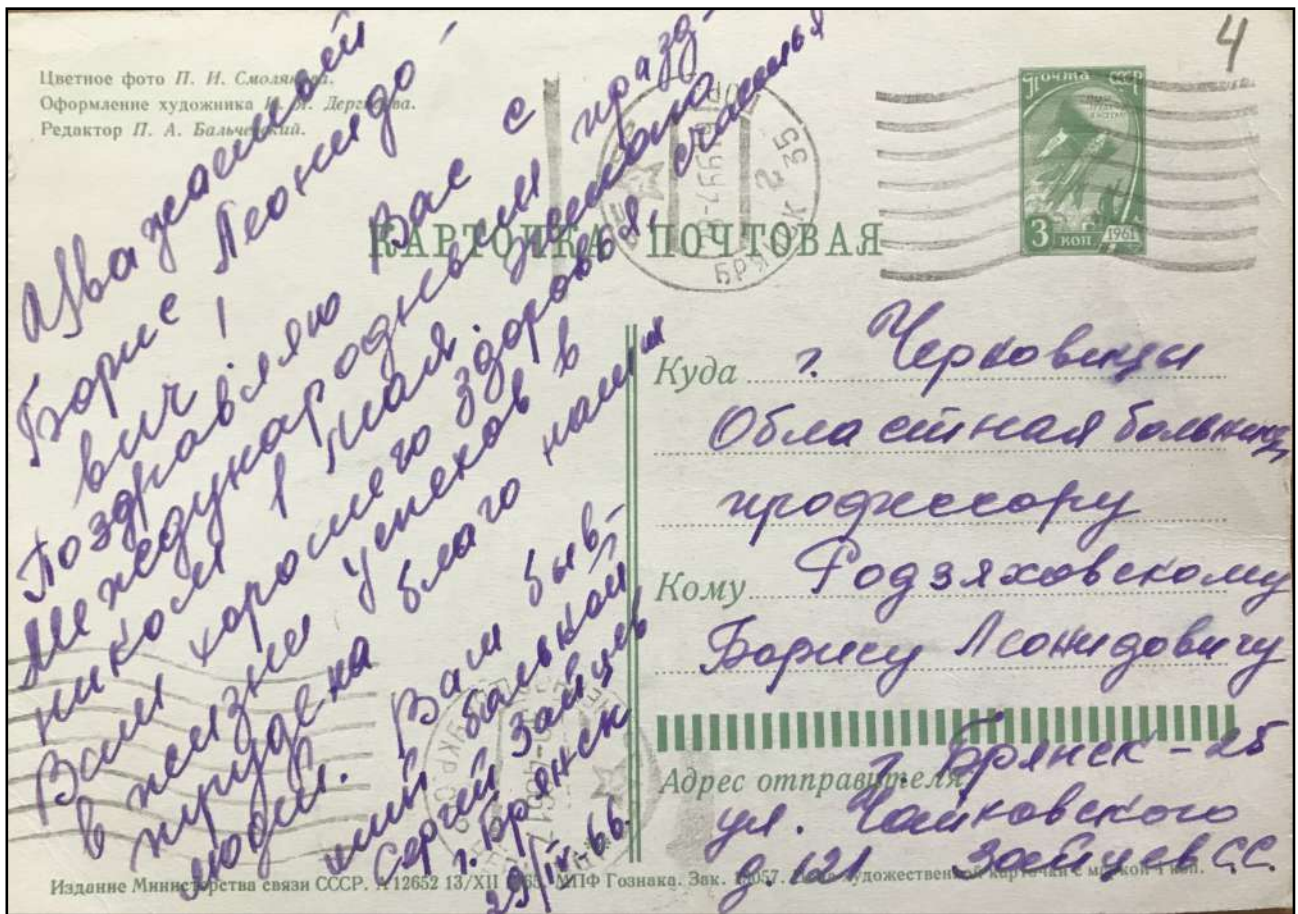 4
Цветное фото П. И. Смолякова.
Оформление художника Дергачёва.
Редактор П. А. Бальчевский.
почта СССР
3 коп 1961
БРЯНСК 2 35
КАРТОЧКА ПОЧТОВАЯ
Уважаемый
Борис Леонидо-
вич!
Поздравляю Вас с
Международным празд-
ником 1 Мая. Желаю
Вам хорошего здоровья, счастья
в жизни успехов в
труде на благо наших
людей.
Ваш быв-
ший больной
Сергей Зайцев
г. Брянск
29/IV-66.
Куда г. Черновцы
Областная больница
профессору
Кому Родзяховскому
Борису Леонидовичу
Адрес отправителя г. Брянск-25
ул. Чайковского
д. 121 Зайцев С.С.
Издание Министерства связи СССР. А 12652 13/XII МПФ Гознака. Зак. художественной карточки с маркой коп.